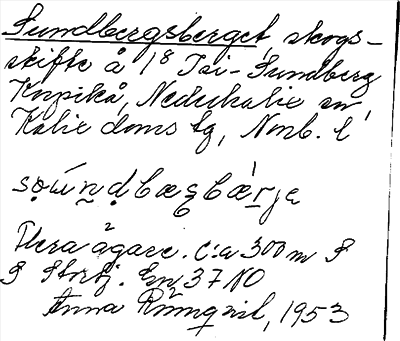 Sundbergsberget, skogs-
skifte å 1⁸ Tai-Sundberg
Korpikå, Nederkalix sn,
Kalix doms tg, Nmb. l
Flera ägare. C:a 300 m S
S Storbj. 37 NO
Anna Rönnqvist, 1953